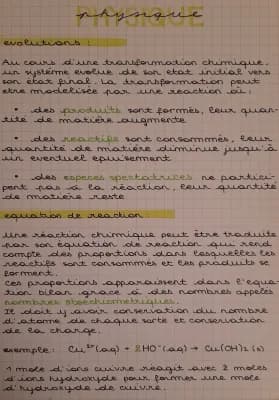 PHYSIQUE
physique
evolutions :
Au cours d'une transformation chimique,
un système evolue de son etat initial vers
son etat final. La transformation peut
etre modelisée par une reaction ou :
• des produits sont formés, leur quan-
tité de matière augmente
• des reactifs sont consommés, leur
quantité de matière diminue jusqu'à
un eventuel epuisement
• des especes spectatrices ne partici-
pent pas à la réaction, leur quantité
de matiere reste
equation de reaction
Une réaction chimique peut être traduite
par son équation de reaction qui rend
compte des proportions dans lesquelles les
reactifs sont consommés et les produits se
forment.
Ces proportions apparaissent dans l'equa-
tion bilan grace à des nombres appelés
nombres stoechiometriques.
Il doit y avoir conservation du nombre
d'atome de chaque sorte et conservation
de la charge.
exemple : Cu²⁺(aq) + 2HO⁻(aq) → Cu(OH)₂(s)
1 mole d'ions cuivre reagit avec 2 moles
d'ions hydroxyde pour former une mole
d'hydroxyde de cuivre.